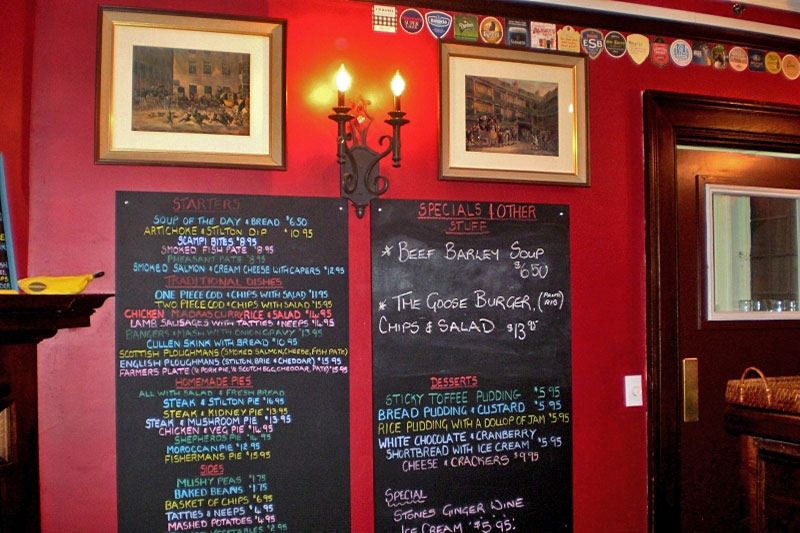 STARTERS
SOUP OF THE DAY & BREAD $6.50
ARTICHOKE & STILTON DIP $10.95
SCAMPI BITES $8.95
SMOKED FISH PATE $8.95
PHEASANT PATE $8.95
SMOKED SALMON & CREAM CHEESE WITH CAPERS $12.95
TRADITIONAL DISHES
ONE PIECE COD & CHIPS WITH SALAD $11.95
TWO PIECE COD & CHIPS WITH SALAD $15.95
CHICKEN MADRAS CURRY RICE & SALAD $14.95
LAMB SAUSAGES WITH TATTIES & NEEPS $14.95
BANGERS & MASH WITH ONION GRAVY $13.95
CULLEN SKINK WITH BREAD $10.95
SCOTTISH PLOUGHMANS (SMOKED SALMON, CHEESE, FISH PATE)
ENGLISH PLOUGHMANS (STILTON, BRIE & CHEDDAR) $15.95
FARMERS PLATE (½ PORK PIE, ½ SCOTCH EGG, CHEDDAR, PATE) $15.95
HOMEMADE PIES
ALL WITH SALAD & FRESH BREAD
STEAK & STILTON PIE $14.95
STEAK & KIDNEY PIE $13.95
STEAK & MUSHROOM PIE $13.95
CHICKEN & VEG PIE $14.95
SHEPHERDS PIE $14.95
MOROCCAN PIE $12.95
FISHERMANS PIE $15.95
SIDES
MUSHY PEAS $1.75
BAKED BEANS $1.75
BASKET OF CHIPS $6.95
TATTIES & NEEPS $4.95
MASHED POTATOES $4.95
VEGETABLES $2.95
SPECIALS & OTHER
STUFF
* BEEF BARLEY SOUP
$6.50
* THE GOOSE BURGER,
CHIPS & SALAD $13.95
DESSERTS
STICKY TOFFEE PUDDING $5.95
BREAD PUDDING & CUSTARD $5.95
RICE PUDDING WITH A DOLLOP OF JAM $5.95
WHITE CHOCOLATE & CRANBERRY
SHORTBREAD WITH ICE CREAM $5.95
CHEESE & CRACKERS $9.95
SPECIAL
STONES GINGER WINE
ICE CREAM $5.95
ESB